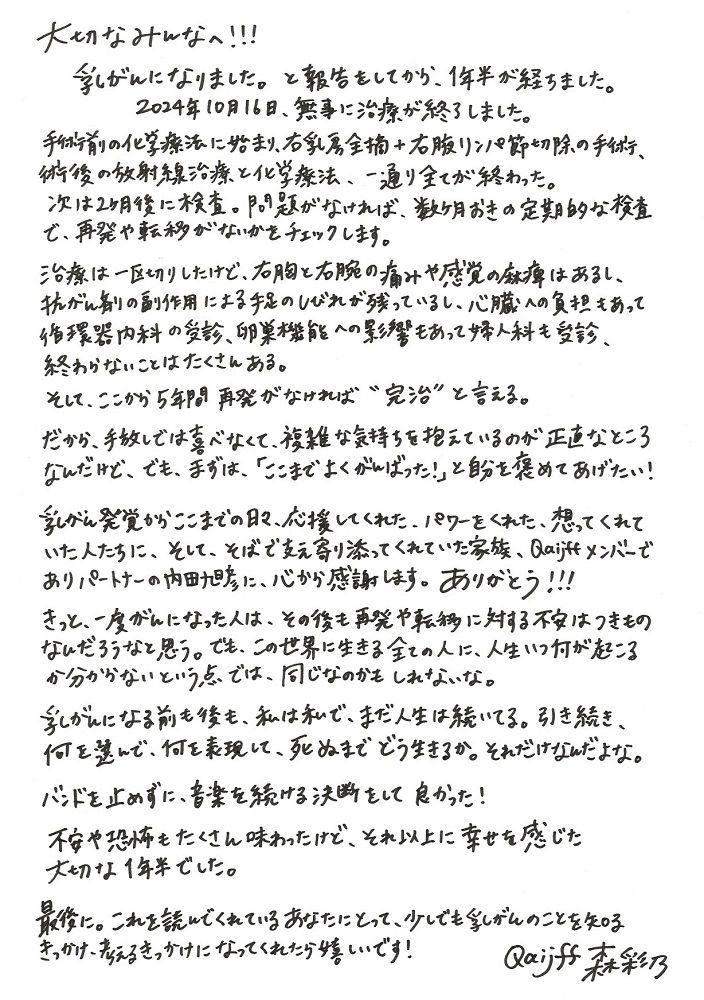 大切なみんなへ!!!
乳がんになりました。と報告をしてから、1年半が経ちました。
2024年10月16日、無事に治療が終了しました。
手術前の化学療法に始まり、右乳房全摘+右腋リンパ節切除の手術、
術後の放射線治療と化学療法、一通り全てが終わった。
次は2ヶ月後に検査。問題がなければ、数ヶ月おきの定期的な検査
で、再発や転移がないかをチェックします。
治療は一区切りしたけど、右胸と右腕の痛みや感覚の麻痺はあるし、
抗がん剤の副作用による手足のしびれが残っているし、心臓への負担もあって
循環器内科の受診、卵巣機能への影響もあって婦人科も受診、
終わらないことはたくさんある。
そして、ここから5年間再発がなければ"完治"と言える。
だから、手放しでは喜べなくて、複雑な気持ちを抱えているのが正直なところ
なんだけど、でも、まずは、「ここまでよくがんばった!」と自分を褒めてあげたい!
乳がん発覚からここまでの日々、応援してくれた、パワーをくれた、想ってくれて
いた人たちに、そして、そばで支え寄り添ってくれていた家族、Qaijffメンバーで
ありパートナーの内田旭彦に、心から感謝します。ありがとう!!!
きっと、一度がんになった人は、その後も再発や転移に対する不安はつきもの
なんだろうなと思う。でも、この世界に生きる全ての人に、人生いつ何が起こる
か分からないという点では、同じなのかもしれないな。
乳がんになる前も後も、私は私で、まだ人生は続いてる。引き続き、
何を選んで、何を表現して、死ぬまでどう生きるか。それだけなんだよな。
バンドを止めずに、音楽を続ける決断をして良かった!
不安や恐怖もたくさん味わったけど、それ以上に幸せを感じた
大切な1年半でした。
最後に。これを読んでくれているあなたにとって、少しでも乳がんのことを知る
きっかけ、考えるきっかけになってくれたら嬉しいです!
Qaijff 森彩乃